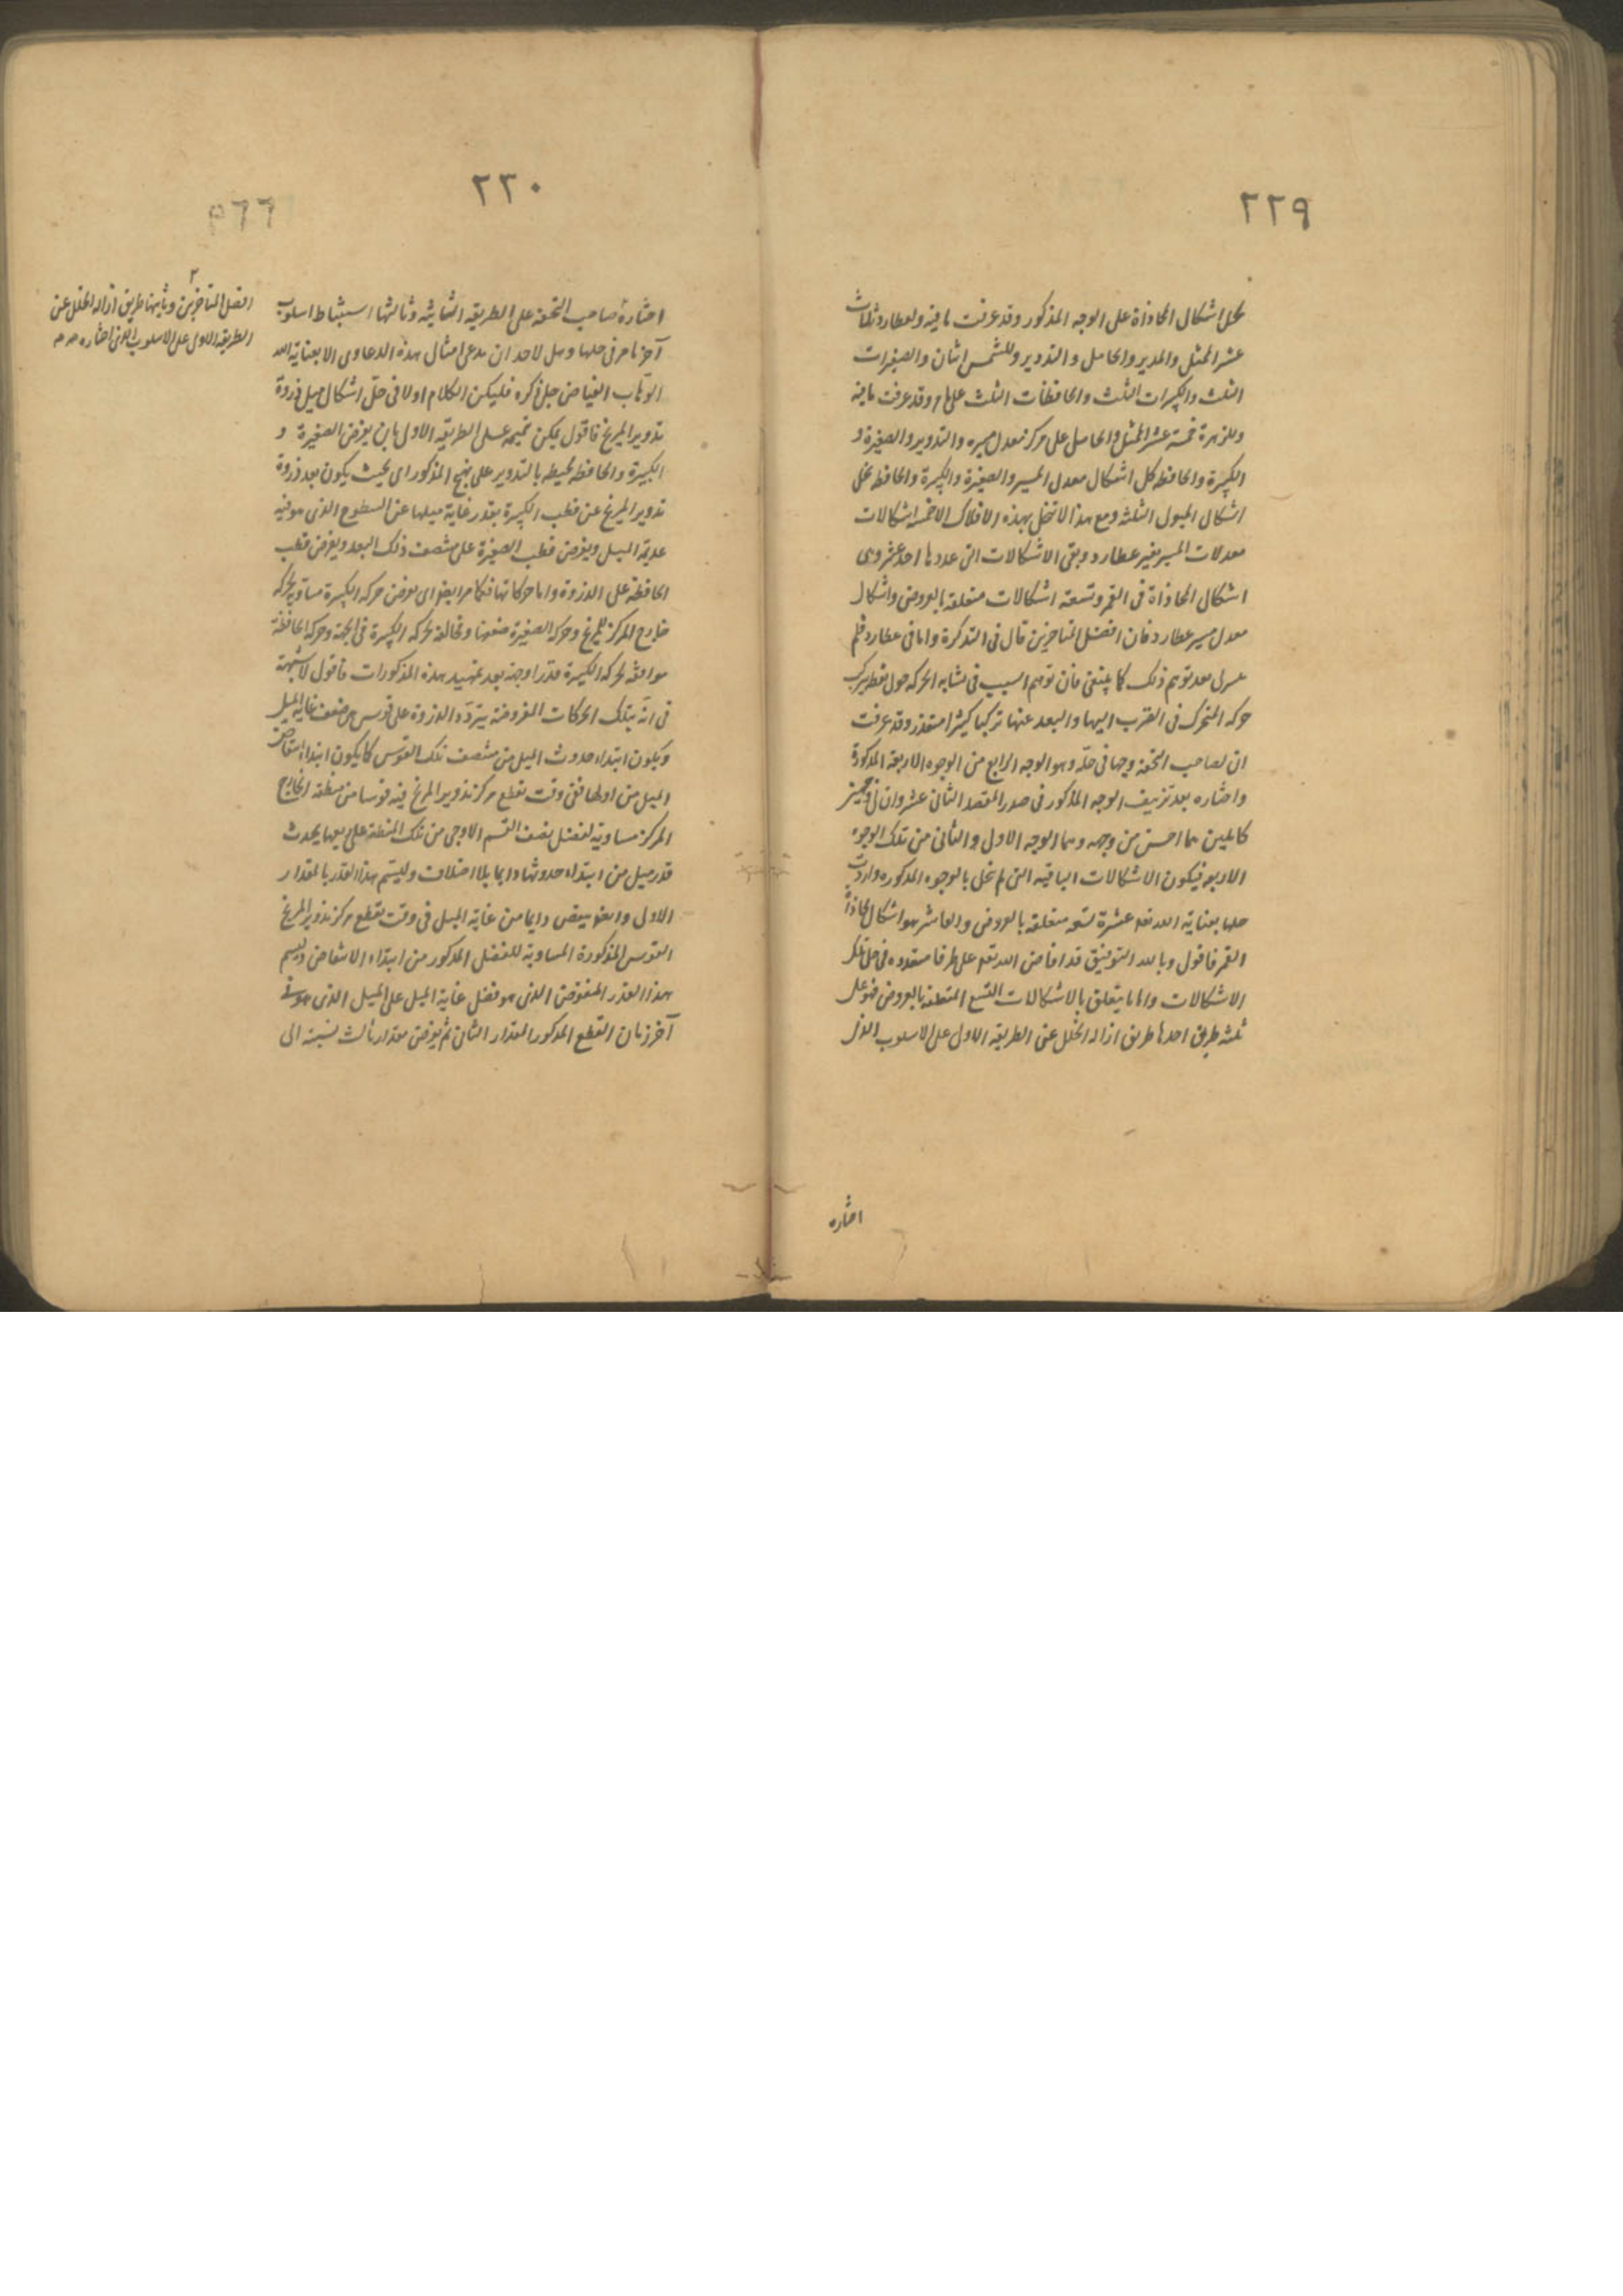 ٢٢٩
لحل اشكال المحاذاة على الوجه المذكور وقد عرفت ما فيه ولعطارد ثلاث
عشر الممثل والمدير والحامل والتدوير وللشمس اثنان والصغيرات
الثلث والكبيرات الثلث والحافظات الثلث على ما مر وقد عرفت ما فيه
وللزهرة خمسة عشر الممثل والحامل على مركز معدل مسيره والتدوير والصغيرة و
الكبيرة والحافظة لحل اشكال معدل المسير والصغيرة والكبيرة والحافظة لحل
اشكال الميول الثلثة ومع هذا لا تنحل بهذه الافلاك الا خمسة اشكالات
معدلات المسير بغير عطارد وبقى الاشكالات التى عددها احد عشر وهى
اشكال المحاذاة فى القمر وتسعة اشكالات متعلقة بالعروض واشكال
معدل مسير عطارد فان افضل المتاخرين قال فى التذكرة واما فى عطارد فلم
يتيسر لى بعد توهم ذلك كما ينبغى فان توهم السبب فى تشابه الحركة حول نقطة يتركب
حركة المتحرك فى القرب اليها والبعد عنها تركبا كثيرا متعذر وقد عرفت
ان لصاحب التحفة وجها فى حله وهو الوجه الرابع من الوجوه الاربعة المذكورة
واختاره بعد تزييف الوجه المذكور فى صدر المقصد الثانى عشر وان لى وجهين
كاملين هما احسن من وجهه وهما الوجه الاول والثانى من تلك الوجوه
الاربعة فيكون الاشكالات الباقية التى لم تحل بالوجوه المذكورة واردت
حلها بعناية الله تعه عشرة تسعة متعلقة بالعروض والعاشر هو اشكال محاذاة
القمر فاقول وبالله التوفيق قد افاض الله تعه على طرقا متعدده فى حل تلك
الاشكالات واما ما يتعلق بالاشكالات التسع المتعلقة بالعروض فهو على
ثلثة طرق احدها طريق ازالة الخلل عن الطريقة الاول على الاسلوب الذى
اختاره
٢٣٠
اختارة صاحب التحفة على الطريقة الثانية وثالثها استنباط اسلوب
آخر تام فى حلها وهل لاحد ان يدعى امثال هذه الدعاوى الا بعناية الله
الوهّاب الفياض جل ذكره فليكن الكلام اولا فى حلّ اشكال ميل ذروة
تدوير المريخ فاقول يمكن تتميمه على الطريقة الاول بان يفرض الصغيرة و
الكبيرة والحافظة محيطة بالتدوير على نهج المذكور اى بحيث يكون بعد ذروة
تدوير المريخ عن قطب الكبيرة بقدر غاية ميلها عن السطوح الذى هو فيه
عديمة الميل ويفرض قطب الصغيرة على منتصف ذلك البعد ويفرض قطب
الحافظة على الذروة واما حركاتها فكما مر ايضا اى يفرض حركة الكبيرة مساوية لحركة
خارج المركز للمريخ وحركة الصغيرة ضعفها ومخالفة لحركة الكبيرة فى الجهة وحركة الحافظة
موافقه لحركة الكبيرة قدرا وجهة بعد تمهيد هذه المذكورات فاقول لا شبهة
فى انّه بتلك الحركات المفروضة يتردّد الذروة على قوس هى ضعف غاية الميل
ويكون ابتداء حدوث الميل من منتصف تلك القوس كما يكون ابتداء انتقاص
الميل من اولها ففى وقت تقطع مركز تدوير المريخ فيه قوسا من منطقة الخارج
المركز مساوية لفضل نصف القسم الاوجى من تلك المنطقة على ربعها يحدث
قدر ميل من ابتداء حدوثها دايما بلا اختلاف وليسم هذا القدر بالمقدار
الاول وايضا ينقص دايما من غاية الميل فى وقت يقطع مركز تدوير المريخ
القوس المذكورة المساوية للفضل المذكور من ابتداء الانتقاص وليسم
هذا القدر المنقوص الذى هو فضل غاية الميل على الميل الذى هو فى
آخر زمان القطع المذكور المقدار الثانى ثم يفرض مقدار ثالث نسبته الى
٢
افضل المتاخرين وثانيها طريق ازالة الخلل عن
الطريقة الاولى على الاسلوب الذى اختاره